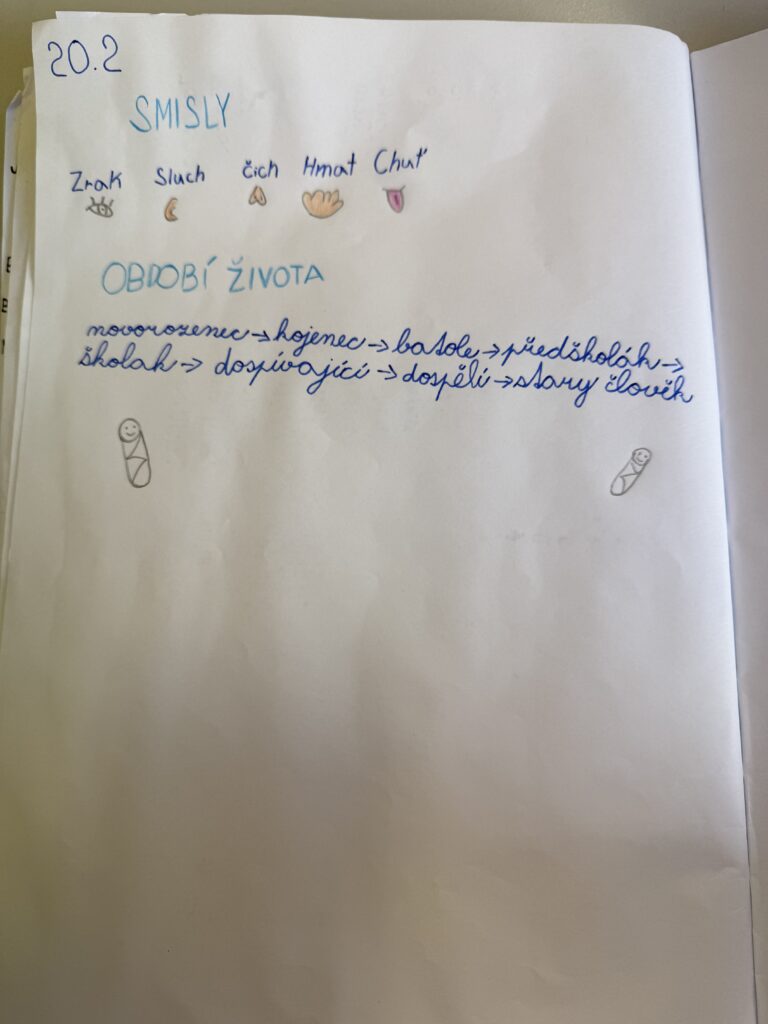 20.2
SMISLY
Zrak Sluch čich Hmat Chuť
OBDOBÍ ŽIVOTA
novorozenec→kojenec→batole→předškolák→
školak→ dospívající→dospělí→stary člověk